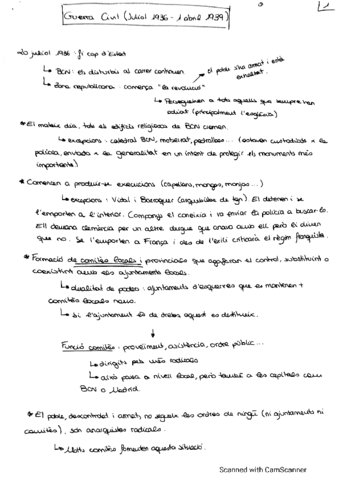 1
Guerra Civil (Juliol 1936 - 1 abril 1939)
20 juliol 1936: fi cop d'Estat
↳ BCN: els disturbis al carrer continuen
→ el poble s'ha armat i està
↳ Zona republicana: comença "la revolució"
↳ Persegueixen a tots aquells que sempre han
odiat (principalment l'església)
* El mateix dia, tots els edificis religiosos de BCN cremen.
↳ excepcions: catedral BCN, Montserrat, pedralbes... (estaven custodiats x la
policia, enviada x la Generalitat en un intent de protegir els monuments més
importants)
* Comencen a produir-se execucions (capellans, monges, monjos...)
↳ excepcions: Vidal i Barraquer (arquebisbe de tgn). El detenen i se
l'emporten a l'interior. Companys el coneixia i va enviar la policia a buscar-lo.
Ell demana clemència per un altre bisbe que anava amb ell però li diuen
que no. Se l'emporten a França i des de l'exili criticarà el règim franquista.
* Formació de comitès locals i provincials que agafaran el control, substituint o
coexistint amb els ajuntaments locals.
↳ dualitat de poders: ajuntaments d'esquerres que es mantenen +
comitès locals nous.
↳ Si l'ajuntament és de dretes aquest es destitueix.
↓
Funció comitès: proveïment, assistència, ordre públic...
↳ dirigits pels més radicals
↳ això passa a nivell local, però també a les capitals com
BCN o Madrid.
* El poble, descontrolat i armat, no segueix les ordres de ningú (ni ajuntaments ni
comitès), són anarquistes radicals.
↳ Molts comitès fomenten aquesta situació.
Scanned with CamScanner